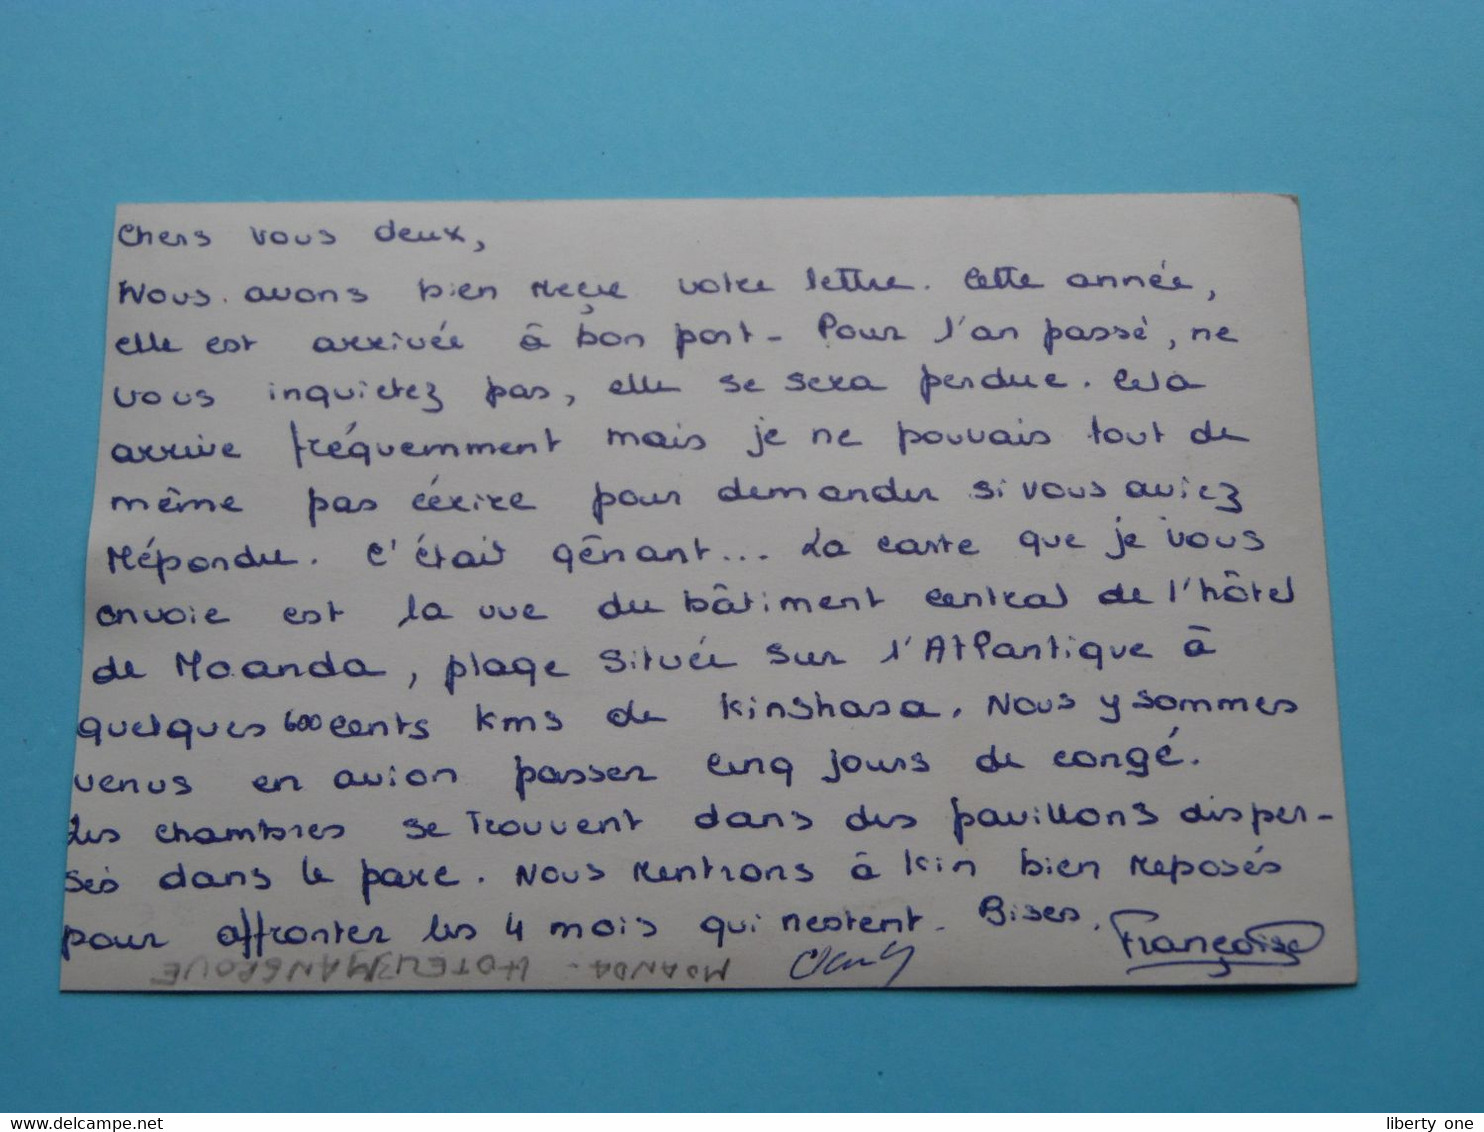 Chers vous deux,
Nous avons bien reçu votre lettre. Cette année,
elle est arrivée à bon port - Pour l'an passé, ne
vous inquietez pas, elle se sera perdue. Cela
arrive fréquemment mais je ne pouvais tout de
même pas écrire pour demander si vous aviez
répondu. C'était gênant... La carte que je vous
envoie est la vue du bâtiment central de l'hôtel
de Moanda, plage située sur l'Atlantique à
quelques 600 cents kms de Kinshasa. Nous y sommes
venus en avion passer cinq jours de congé.
Les chambres se trouvent dans des pavillons disper-
sés dans le parc. Nous rentrons à Kin bien reposés
pour affronter les 4 mois qui restent. Bises.
Françoise
MOANDA - HOTEL MANGROVE
liberty one